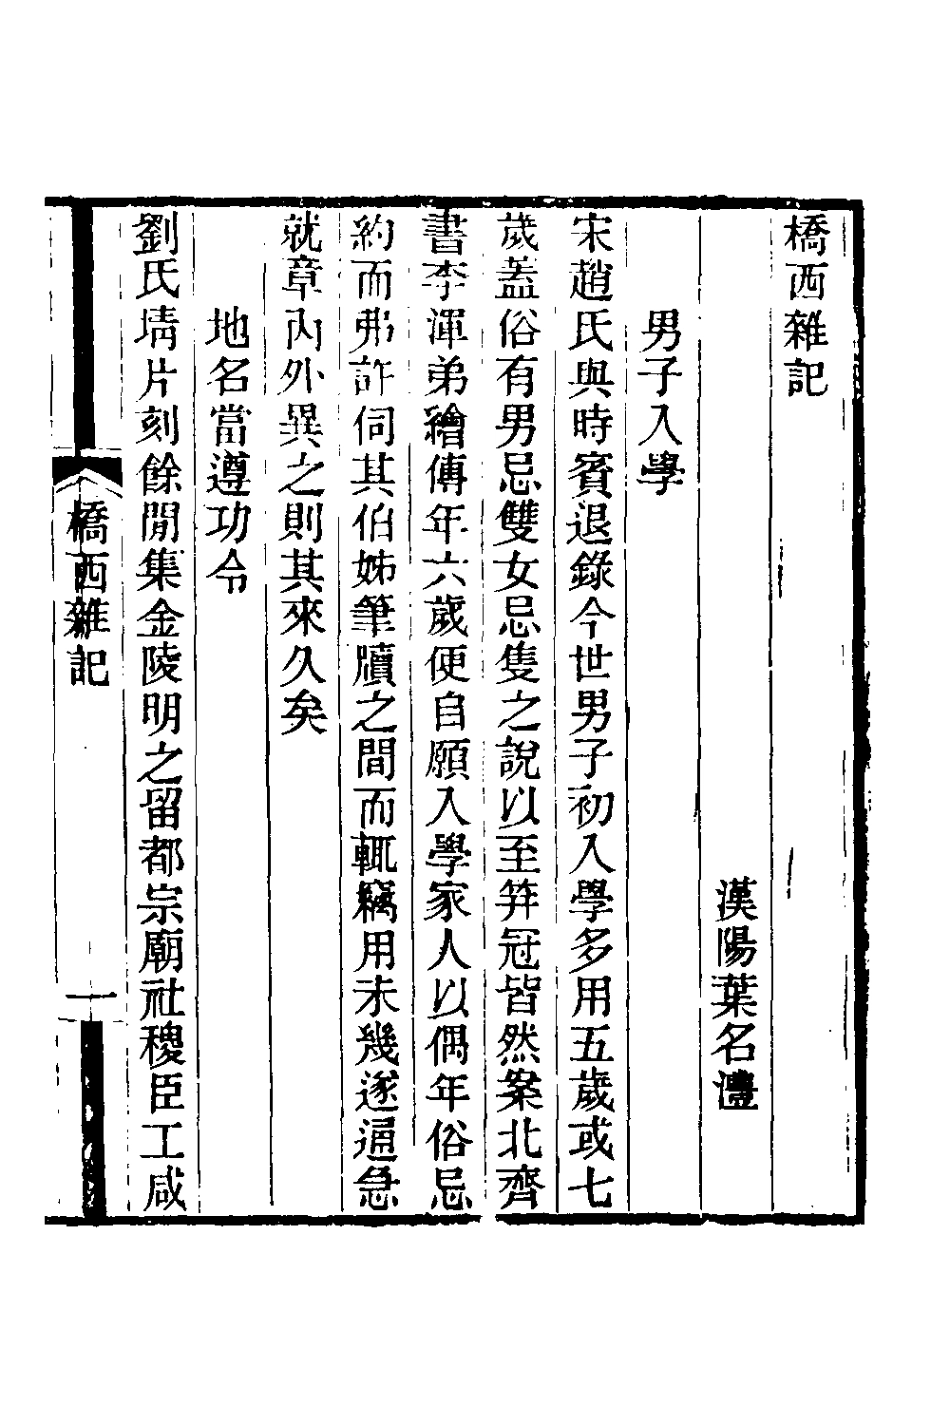 橋西雜記
漢陽葉名灃
男子入學
宋趙氏與時賓退錄今世男子初入學多用五歲或七
歲蓋俗有男忌雙女忌隻之說以至笄冠皆然案北齊
書李渾弟繪傳年六歲便自願入學家人以偶年俗忌
約而弗許伺其伯姊筆牘之間而輒竊用未幾遂通急
就章內外異之則其來久矣
地名當遵功令
劉氏堉片刻餘閒集金陵明之留都宗廟社稷臣工咸
橋西雜記
一